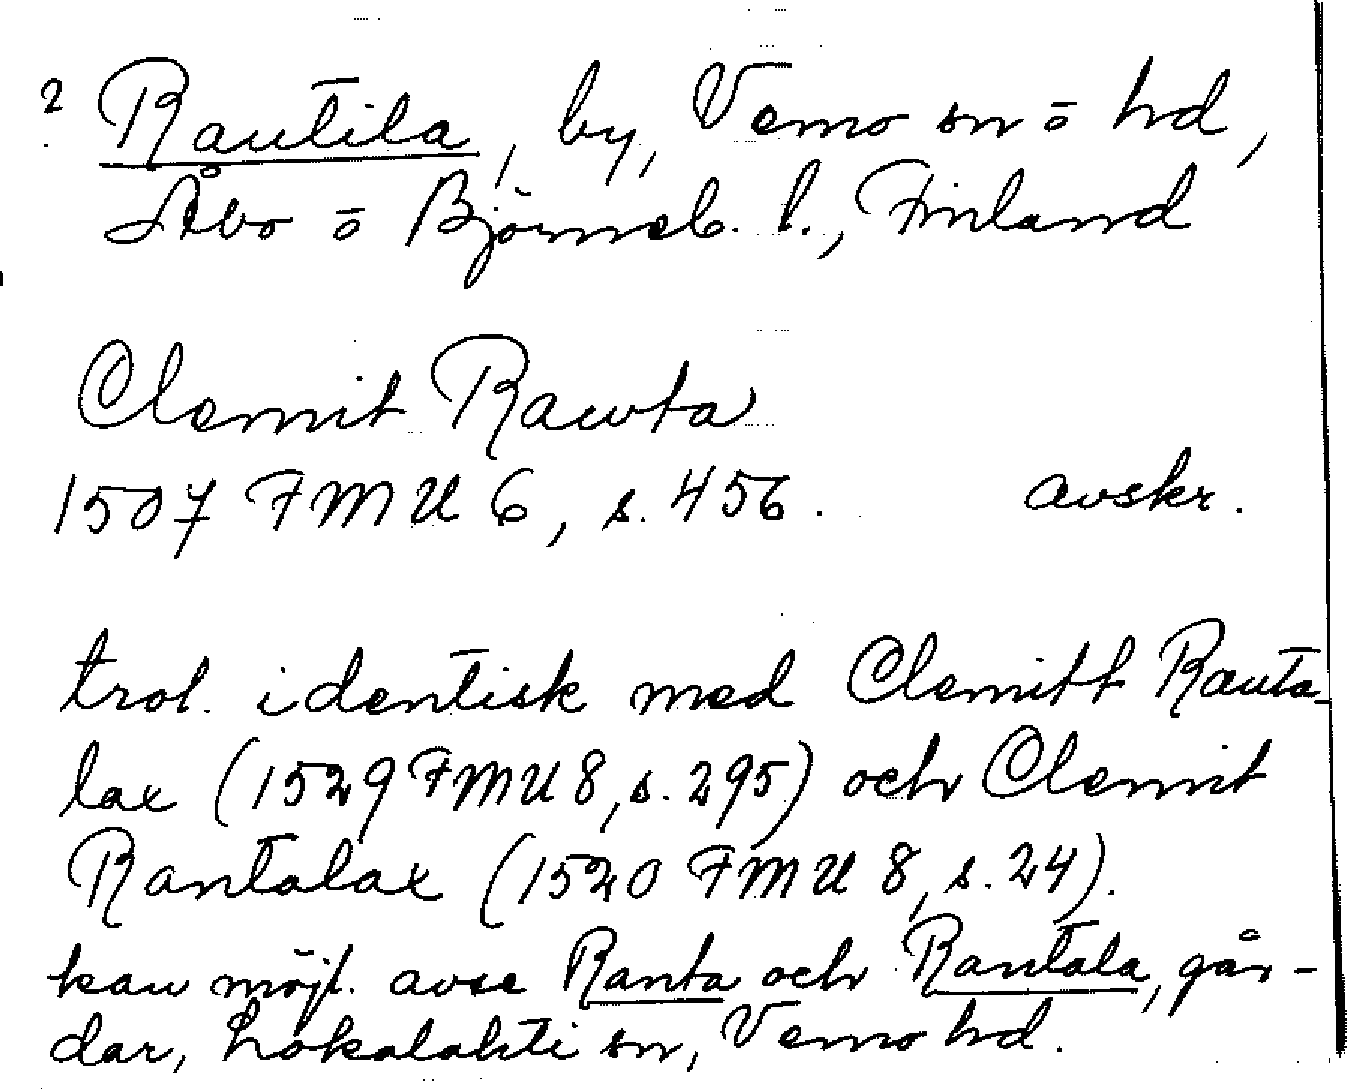 ? Rautila, by, Vemo sn ō hd,
Åbo ō Björneb. l., Finland
Clemit Rawta
1507 FMU 6, s. 456. avskr.
trol. identisk med Clemitt Rauta-
lax (1529 FMU 8, s. 295) och Clemit
Rantalax (1520 FMU 8, s. 24).
kan möjl. avse Ranta och Rantala, går-
dar, Lokalahti sn, Vemo hd.